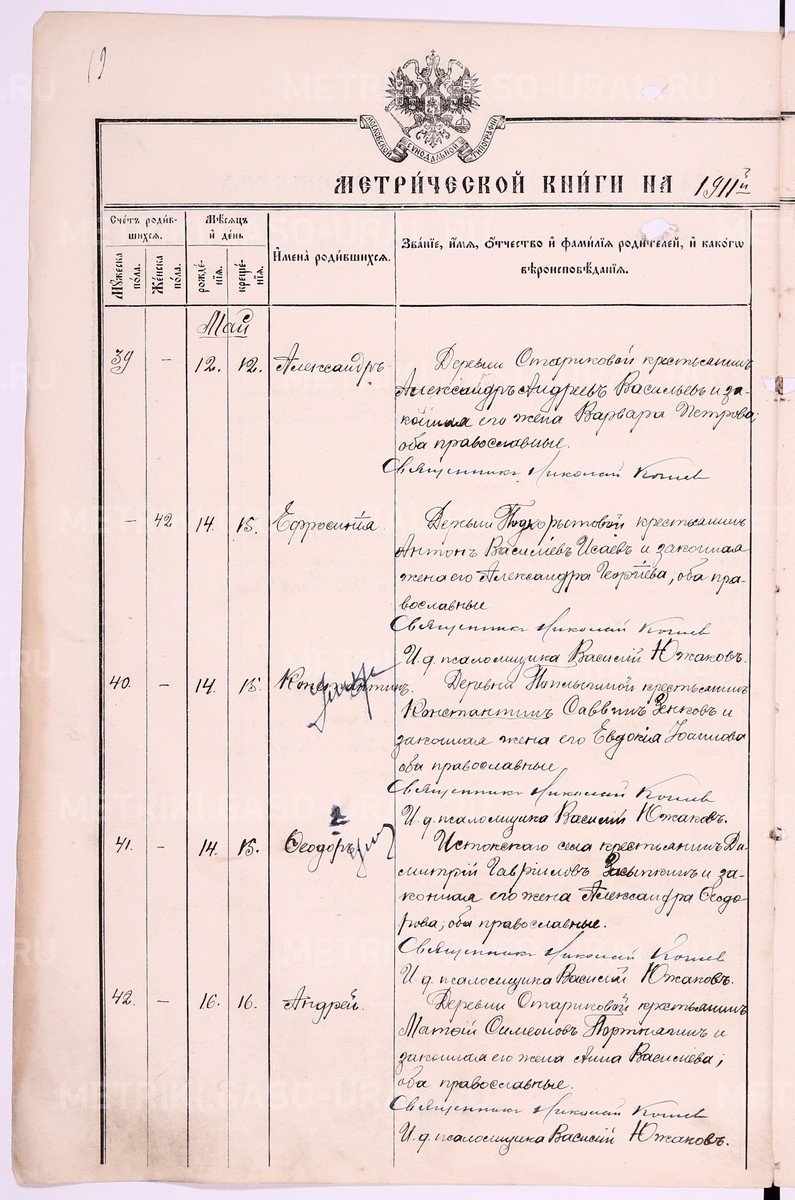 19
МОСКОВСКОЙ СѴНОДАЛЬНОЙ ТИПОГРАФІИ
МЕТРИ́ЧЕСКОЙ КНИ́ГИ НА 1911й
Счетъ роди́вшихся.
Мѣсяцъ и день
Имена̀ роди́вшихся.
Зва́ніе, и́мя, о́тчество и фами́лія роди́телей, и како́гѡ вѣроисповѣ́данія.
Му́жеска по́ла.
Же́нска по́ла.
рожде́нія.
креще́нія.
Май
39 – 12. 12. Александръ
Деревни Стариковой крестьянинъ
Александръ Андреевъ Васильевъ и за-
конная его жена Варвара Петрова;
оба православные.
Священникъ Николай
– 42 14. 15. Ефросинія.
Деревни крестьянинъ
Антонъ Василіевъ Исаевъ и законная
жена его Александра Георгіева; оба пра-
вославные
Священникъ Николай
И. д. псаломщика Василій Южаковъ.
40. – 14. 15. Константинъ.
Деревни крестьянинъ
Константинъ Саввинъ Зенковъ и
законная жена его Евдокія Іоаннова
оба православные
Священникъ Николай
И. д. псаломщика Василій Южаковъ.
2
41. – 14. 15. Ѳеодоръ
Истокскаго села крестьянинъ Ди-
митрій Гавріиловъ Засыпкинъ и за-
конная его жена Александра Ѳеодо-
рова; оба православные.
Священникъ Николай
И. д. псаломщика Василій Южаковъ.
42. – 16. 16. Андрей.
Деревни Стариковой крестьянинъ
Матѳій Симеоновъ Портнягинъ и
законная его жена Анна Василіева;
оба православные.
Священникъ Николай
И. д. псаломщика Василій Южаковъ.